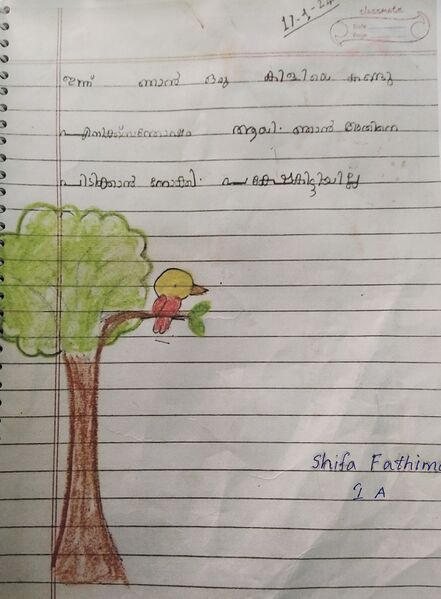 classmate
Date
Page
17-1-24
ഇന്ന് ഞാൻ ഒരു കിളിയെ കണ്ടു
എനിക്ക് സന്തോഷം ആയി. ഞാൻ അതിനെ
പിടിക്കാൻ നോക്കി. പക്ഷേ കിട്ടിയില്ല
Shifa Fathima
I A